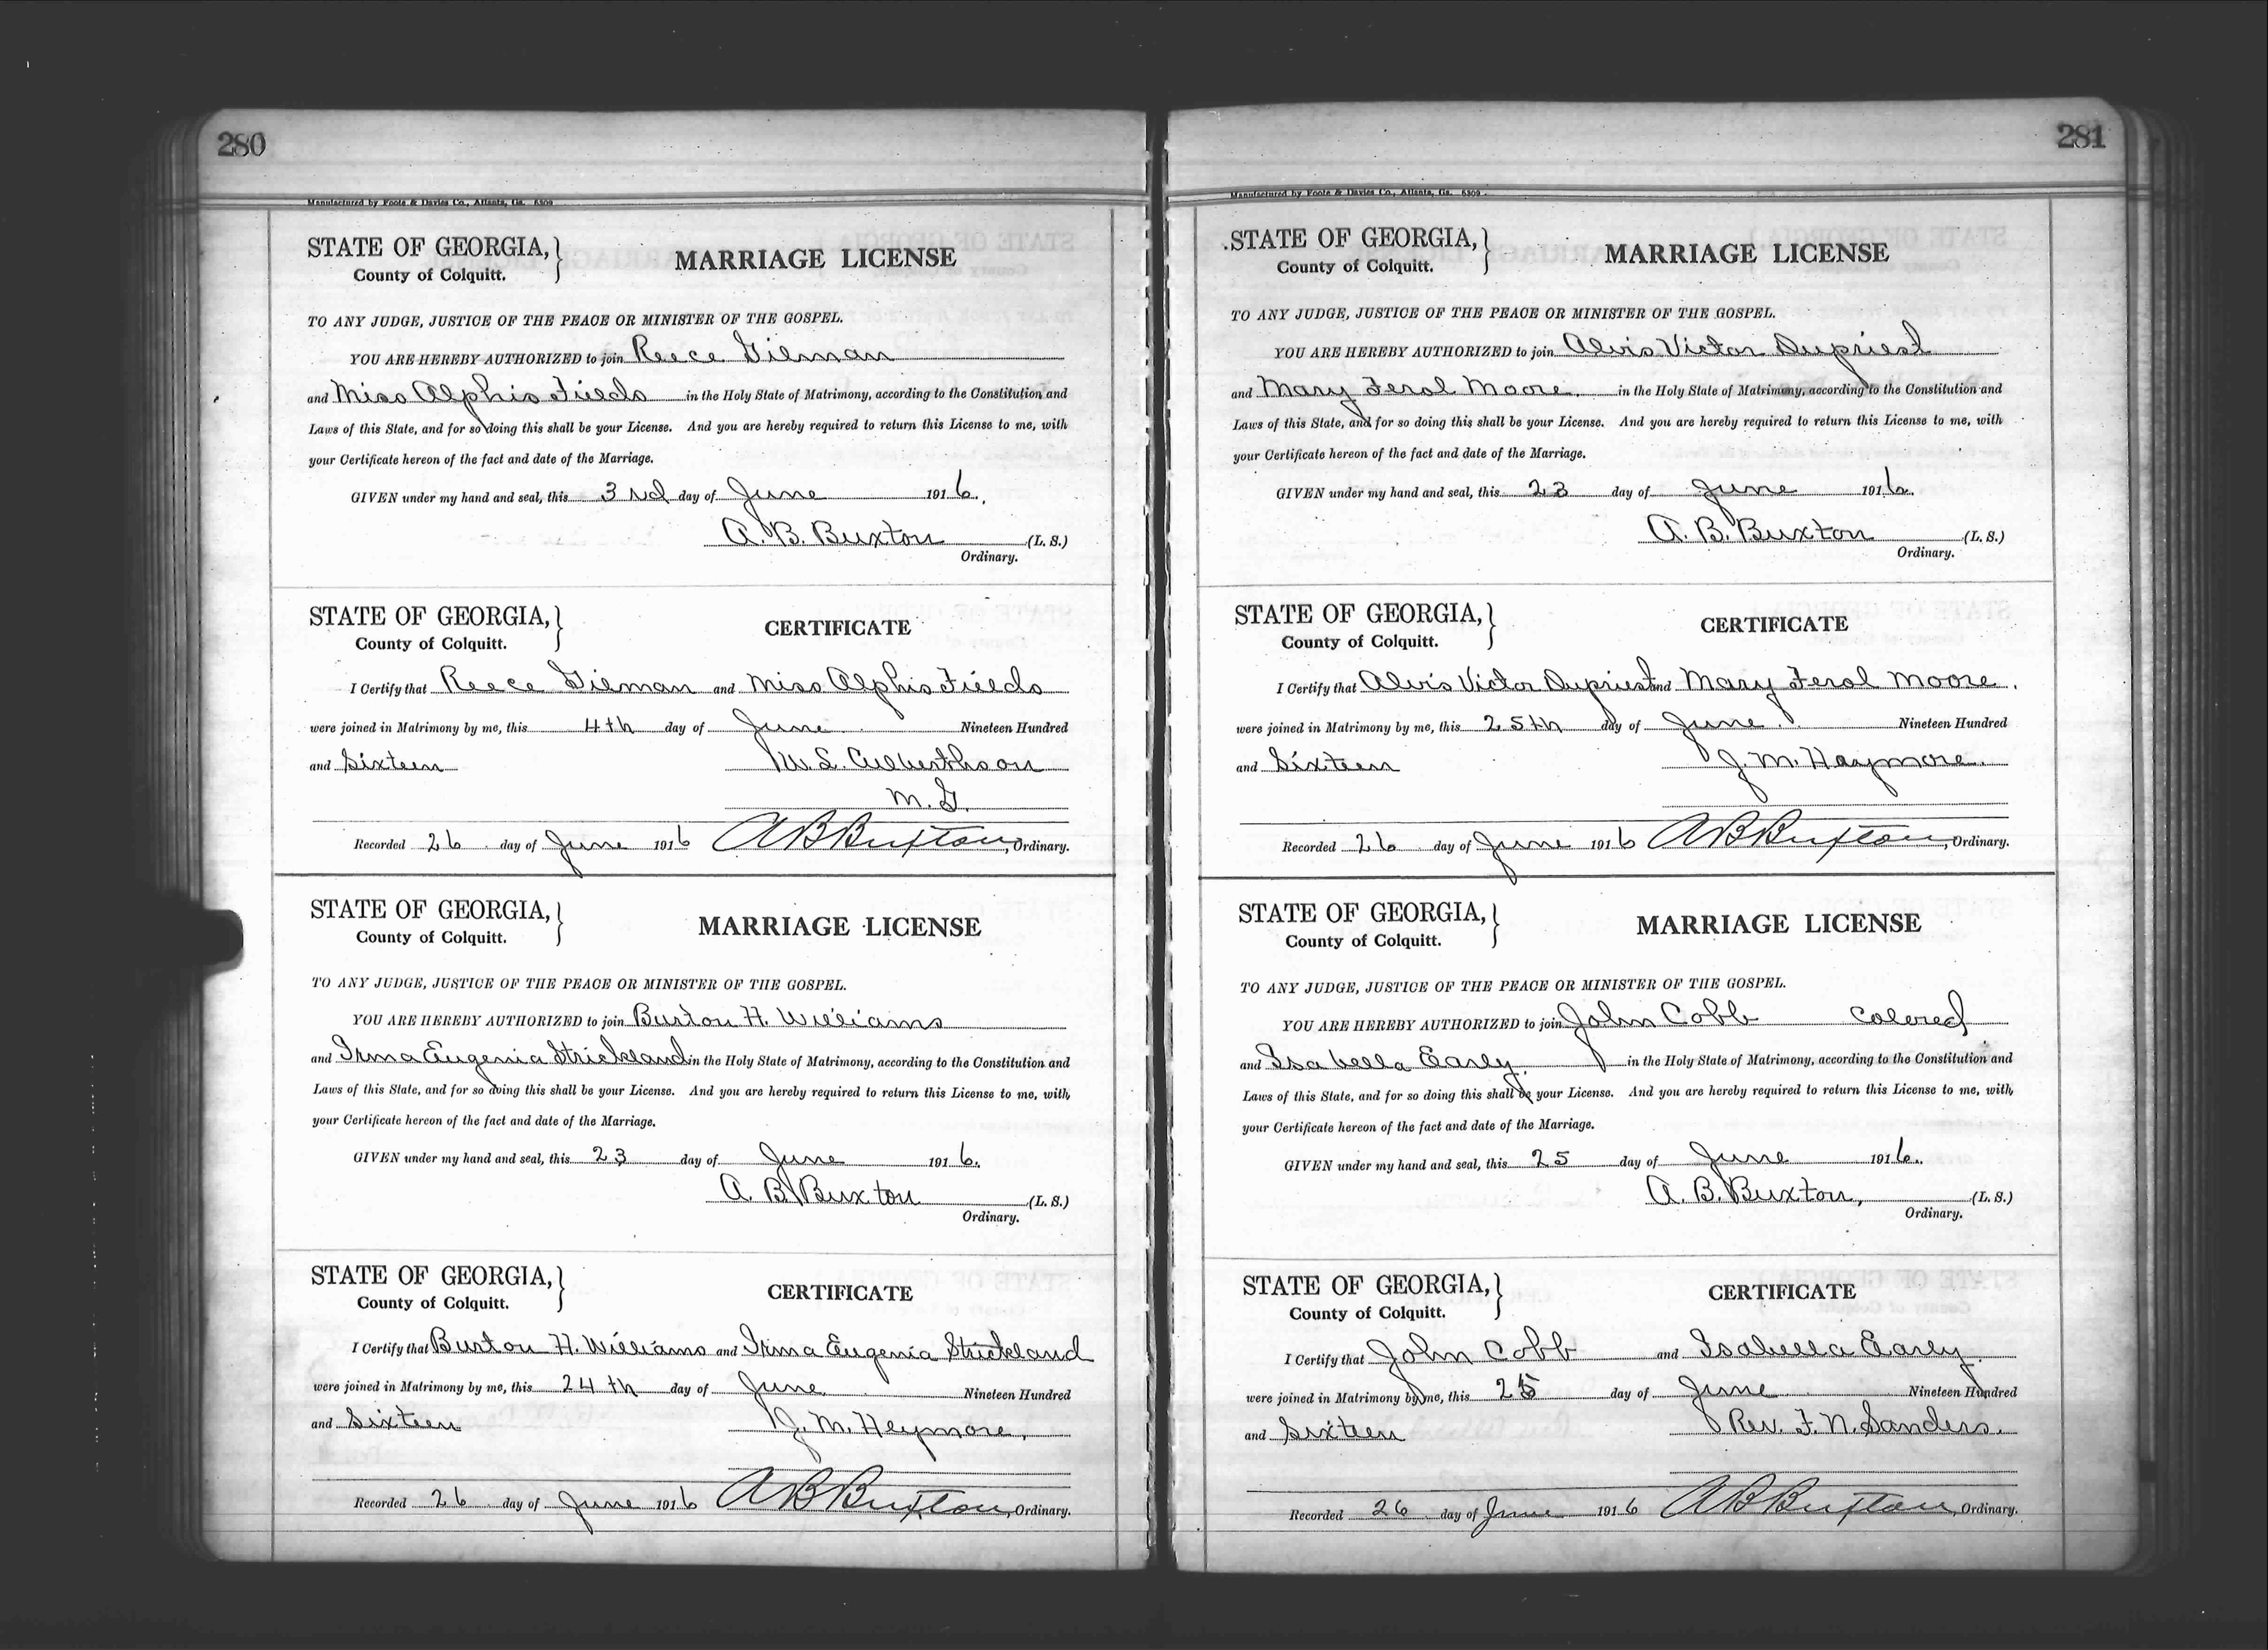 280
Manufactured by Foote & Davies Co., Atlanta, Ga. 6309
STATE OF GEORGIA,
County of Colquitt.
MARRIAGE LICENSE
TO ANY JUDGE, JUSTICE OF THE PEACE OR MINISTER OF THE GOSPEL.
YOU ARE HEREBY AUTHORIZED to join Reece Gilman
and Miss Alphis Fields in the Holy State of Matrimony, according to the Constitution and
Laws of this State, and for so doing this shall be your License. And you are hereby required to return this License to me, with
your Certificate hereon of the fact and date of the Marriage.
GIVEN under my hand and seal, this 3rd day of June 1916.
A. B. Buxton (L. S.)
Ordinary.
STATE OF GEORGIA,
County of Colquitt.
CERTIFICATE
I Certify that Reece Gilman and Miss Alphis Fields
were joined in Matrimony by me, this 4th day of June Nineteen Hundred
and Sixteen W. L. Culberthson
M. G.
Recorded 26 day of June 1916 A B Buxton, Ordinary.
STATE OF GEORGIA,
County of Colquitt.
MARRIAGE LICENSE
TO ANY JUDGE, JUSTICE OF THE PEACE OR MINISTER OF THE GOSPEL.
YOU ARE HEREBY AUTHORIZED to join Burton H. Williams
and Irma Eugenia Strickland in the Holy State of Matrimony, according to the Constitution and
Laws of this State, and for so doing this shall be your License. And you are hereby required to return this License to me, with
your Certificate hereon of the fact and date of the Marriage.
GIVEN under my hand and seal, this 23 day of June 1916.
A. B. Buxton (L. S.)
Ordinary.
STATE OF GEORGIA,
County of Colquitt.
CERTIFICATE
I Certify that Burton H. Williams and Irma Eugenia Strickland
were joined in Matrimony by me, this 24th day of June Nineteen Hundred
and Sixteen J. M. Heymore,
Recorded 26 day of June 1916 A B Buxton, Ordinary.
281
Manufactured by Foote & Davies Co., Atlanta, Ga. 6309
STATE OF GEORGIA,
County of Colquitt.
MARRIAGE LICENSE
TO ANY JUDGE, JUSTICE OF THE PEACE OR MINISTER OF THE GOSPEL.
YOU ARE HEREBY AUTHORIZED to join Alvis Victor Dupriest
and Mary Ferol Moore. in the Holy State of Matrimony, according to the Constitution and
Laws of this State, and for so doing this shall be your License. And you are hereby required to return this License to me, with
your Certificate hereon of the fact and date of the Marriage.
GIVEN under my hand and seal, this 23 day of June 1916.
A. B. Buxton (L. S.)
Ordinary.
STATE OF GEORGIA,
County of Colquitt.
CERTIFICATE
I Certify that Alvis Victor Dupriest and Mary Ferol Moore.
were joined in Matrimony by me, this 25th day of June Nineteen Hundred
and Sixteen J. M. Haymore.
Recorded 26 day of June 1916 A B Buxton, Ordinary.
STATE OF GEORGIA,
County of Colquitt.
MARRIAGE LICENSE
TO ANY JUDGE, JUSTICE OF THE PEACE OR MINISTER OF THE GOSPEL.
YOU ARE HEREBY AUTHORIZED to join John Cobb colored
and Isabella Early. in the Holy State of Matrimony, according to the Constitution and
Laws of this State, and for so doing this shall be your License. And you are hereby required to return this License to me, with
your Certificate hereon of the fact and date of the Marriage.
GIVEN under my hand and seal, this 25 day of June 1916.
A. B. Buxton, (L. S.)
Ordinary.
STATE OF GEORGIA,
County of Colquitt.
CERTIFICATE
I Certify that John Cobb and Isabella Early.
were joined in Matrimony by me, this 25 day of June Nineteen Hundred
and Sixteen Rev. F. N. Sanders.
Recorded 26 day of June 1916 A B Buxton, Ordinary.